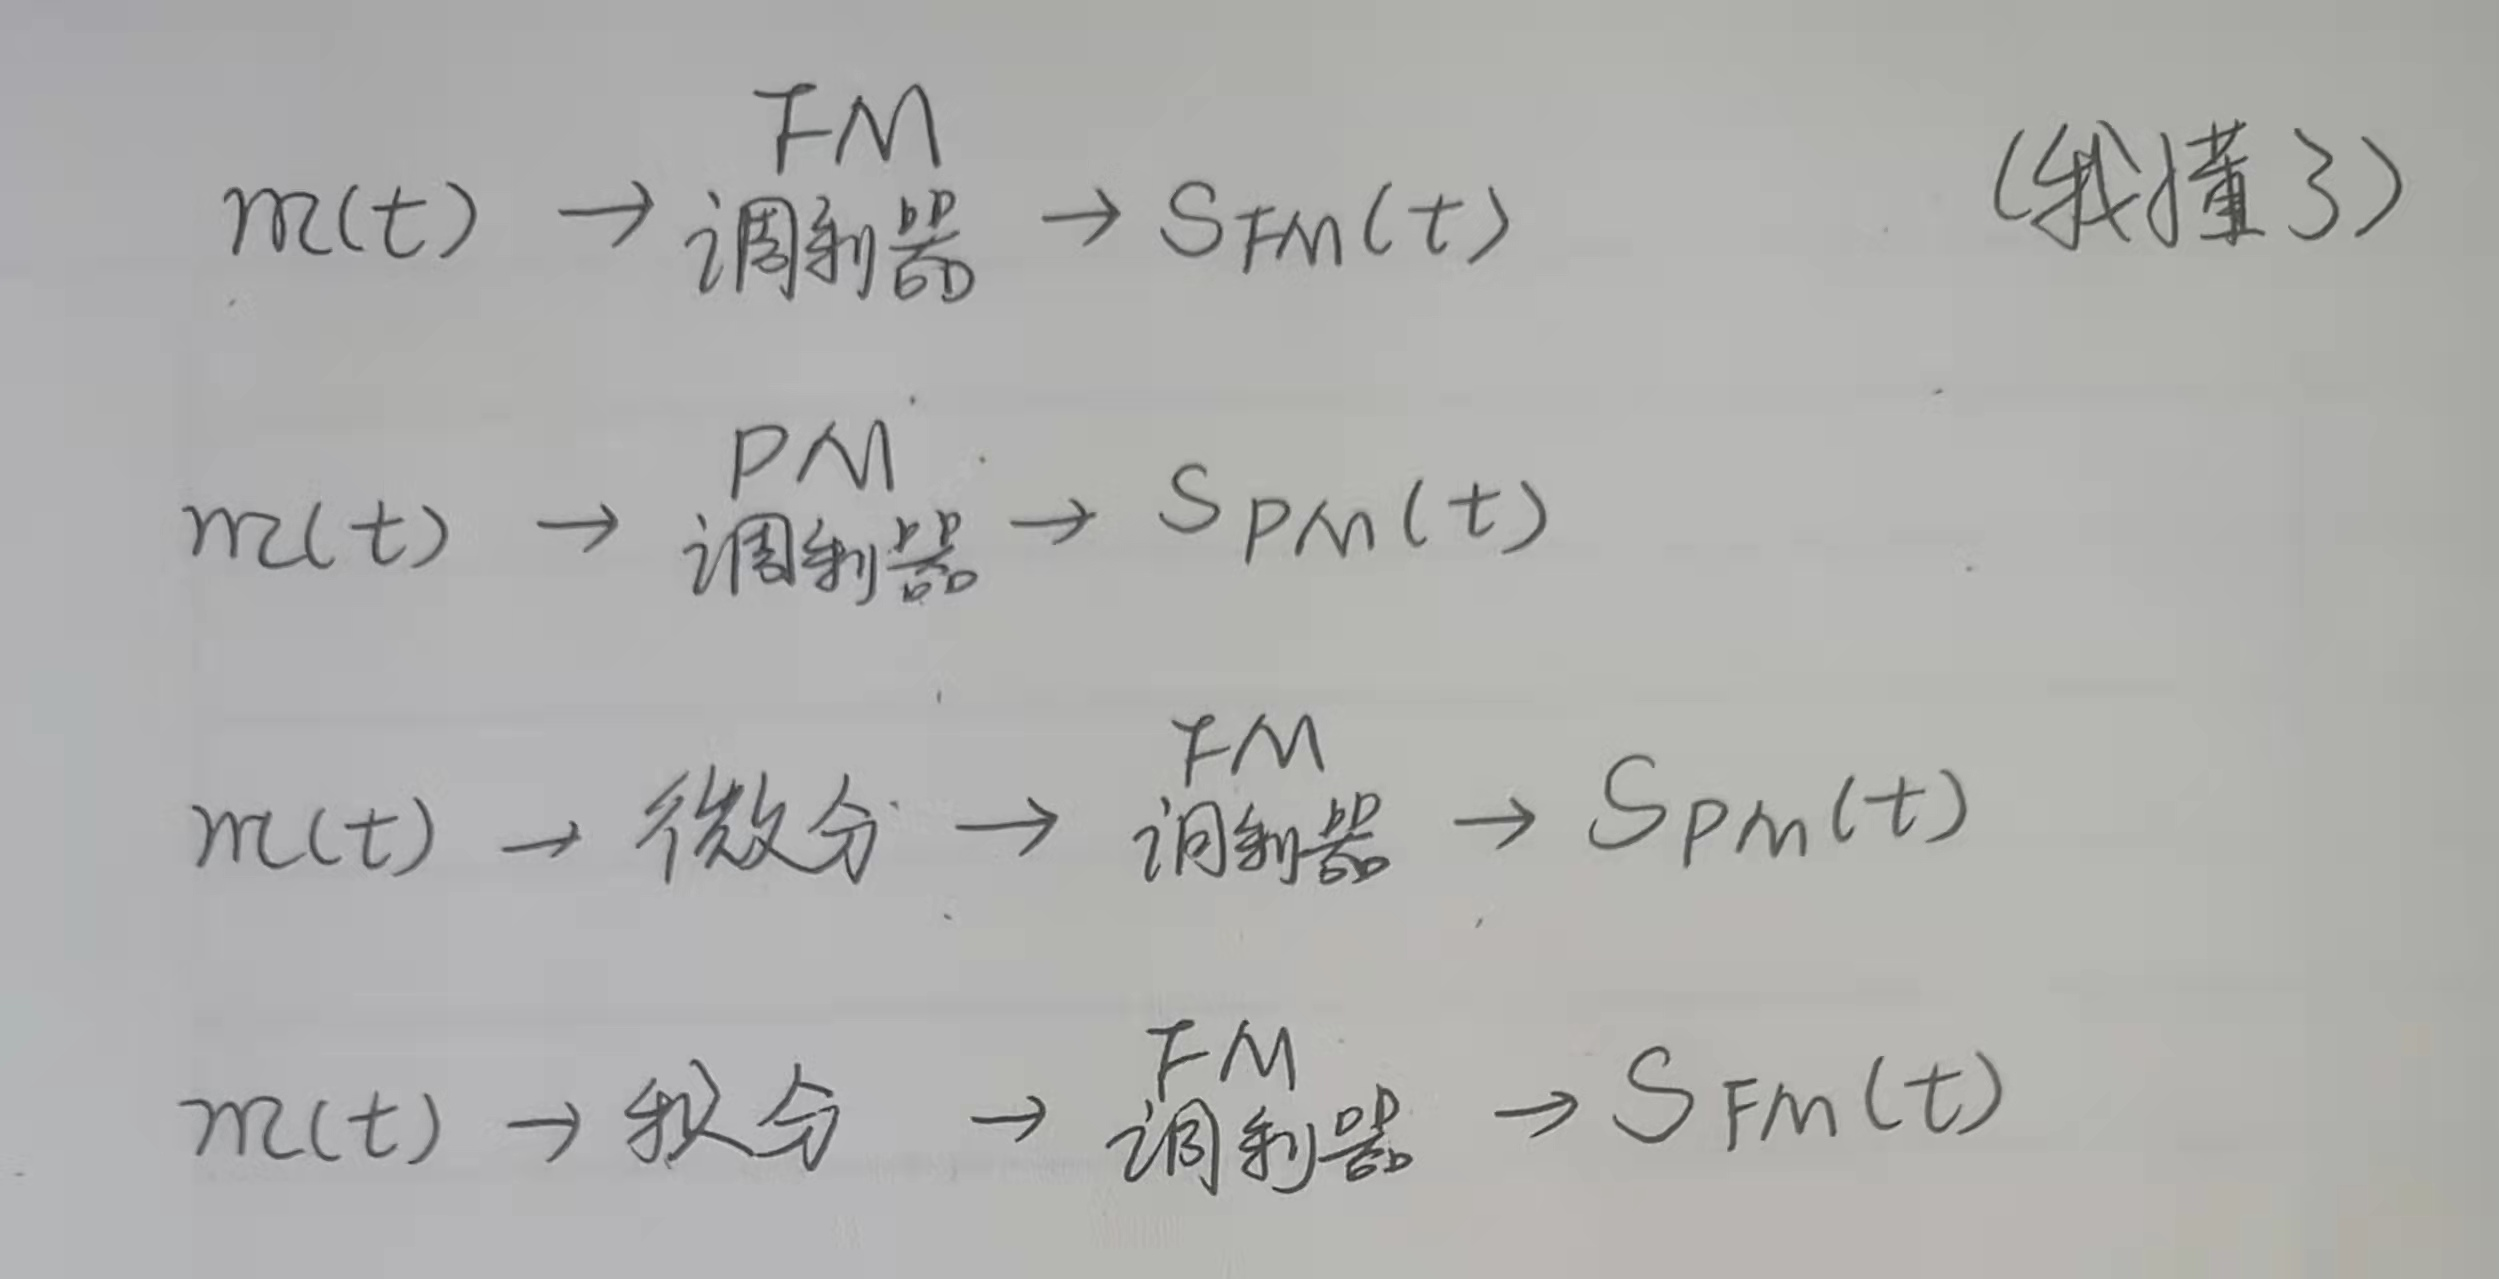 m(t) → FM调制器 → SFM(t) (我懂了)
m(t) → PM调制器 → SPM(t)
m(t) → 微分 → FM调制器 → SPM(t)
m(t) → 积分 → FM调制器 → SFM(t)